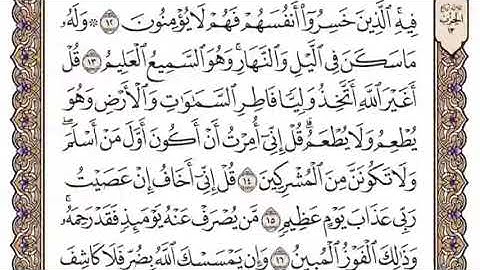 فِيهِ ٱلَّذِينَ خَسِرُوٓا۟ أَنفُسَهُمْ فَهُمْ لَا يُؤْمِنُونَ ١٢ ۞ وَلَهُۥ
مَا سَكَنَ فِى ٱلَّيْلِ وَٱلنَّهَارِ ۚ وَهُوَ ٱلسَّمِيعُ ٱلْعَلِيمُ ١٣ قُلْ
أَغَيْرَ ٱللَّهِ أَتَّخِذُ وَلِيًّا فَاطِرِ ٱلسَّمَٰوَٰتِ وَٱلْأَرْضِ وَهُوَ
يُطْعِمُ وَلَا يُطْعَمُ ۗ قُلْ إِنِّىٓ أُمِرْتُ أَنْ أَكُونَ أَوَّلَ مَنْ أَسْلَمَ ۖ
وَلَا تَكُونَنَّ مِنَ ٱلْمُشْرِكِينَ ١٤ قُلْ إِنِّىٓ أَخَافُ إِنْ عَصَيْتُ
رَبِّى عَذَابَ يَوْمٍ عَظِيمٍ ١٥ مَّن يُصْرَفْ عَنْهُ يَوْمَئِذٍ فَقَدْ رَحِمَهُۥ ۚ
وَذَٰلِكَ ٱلْفَوْزُ ٱلْمُبِينُ ١٦ وَإِن يَمْسَسْكَ ٱللَّهُ بِضُرٍّ فَلَا كَاشِفَ